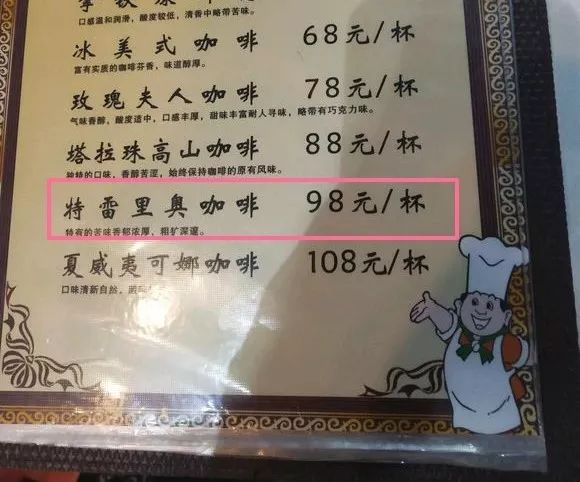 口感温和润滑，酸度较低，清香中略带苦味。
冰美式咖啡 68元/杯
富有实质的咖啡芬香，味道醇厚。
玫瑰夫人咖啡 78元/杯
气味香醇，酸度适中，口感丰厚，甜味丰富耐人寻味，略带有巧克力味。
塔拉珠高山咖啡 88元/杯
独特的口味，香醇苦涩，始终保持咖啡的原有风味。
特雷里奥咖啡 98元/杯
特有的苦味香郁浓厚、粗犷深邃。
夏威夷可娜咖啡 108元/杯
口味清新自然，